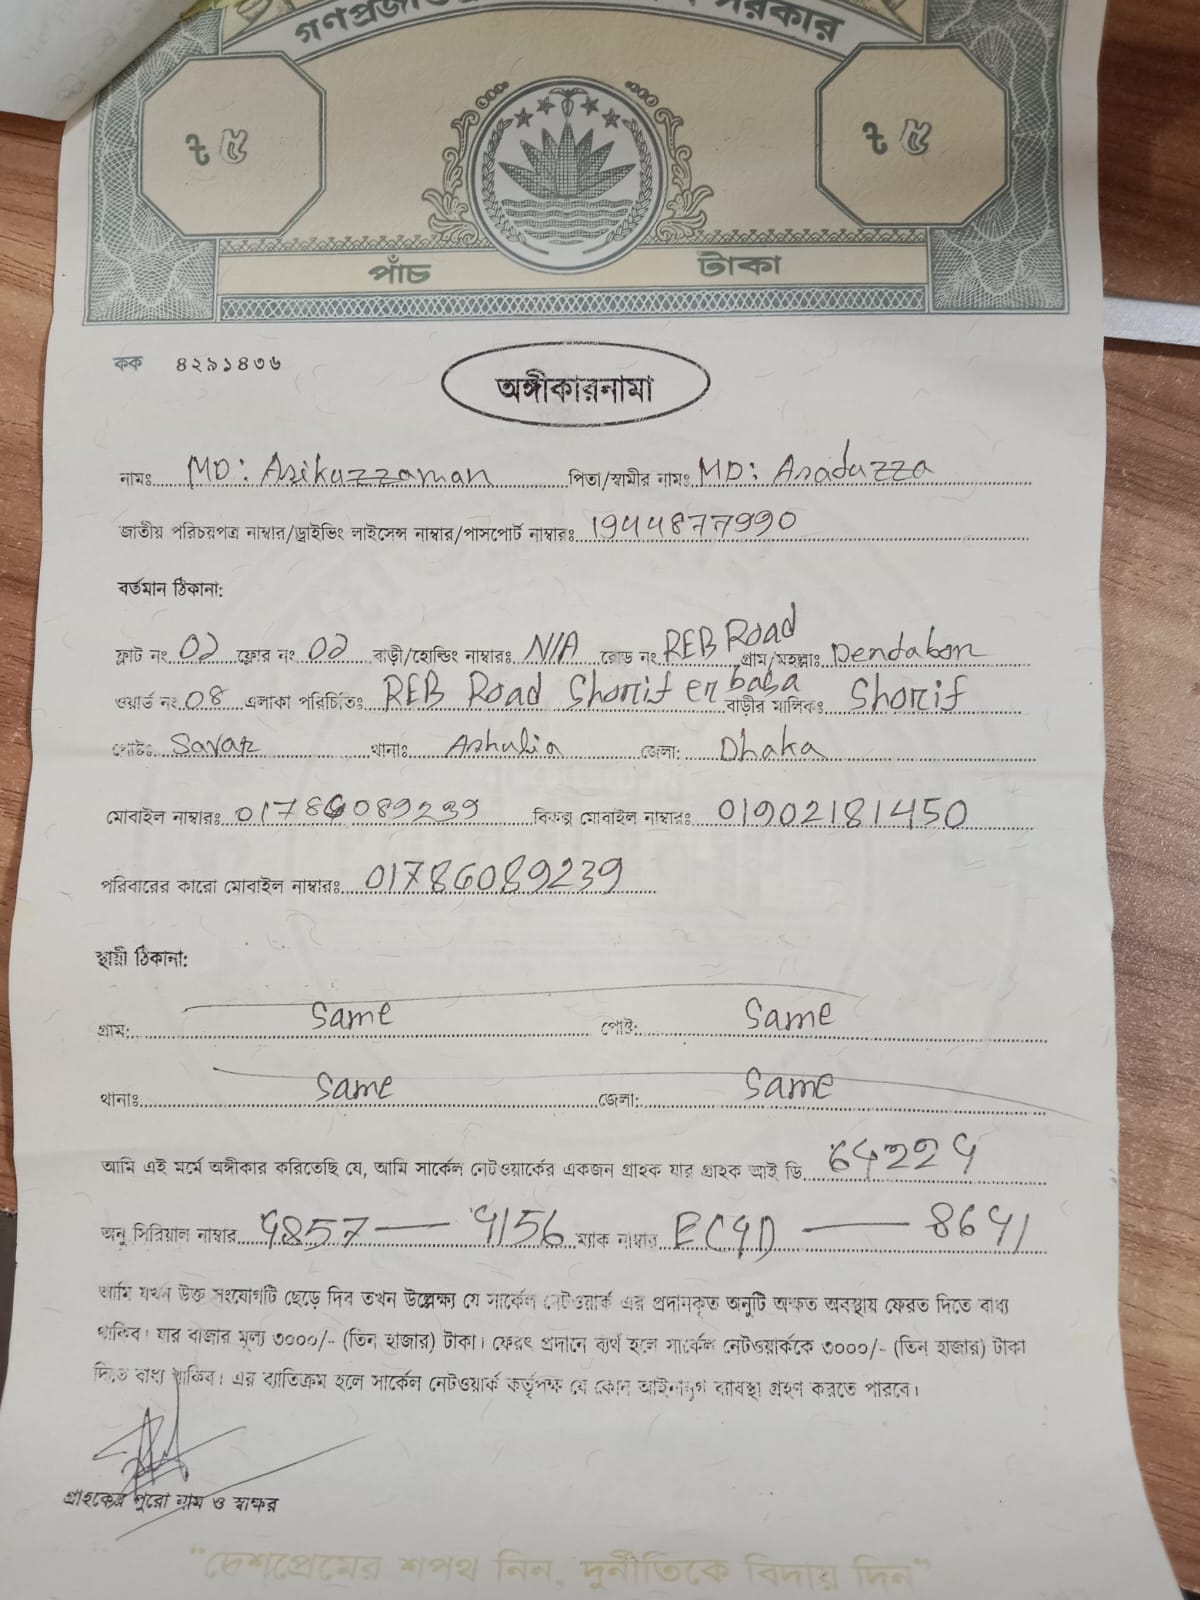 গণপ্রজাতন্ত্রী সরকার
৳ ৫ ৳ ৫
পাঁচ টাকা
কক ৪২৯১৪৩৬
অঙ্গীকারনামা
নামঃ MD: Asikuzzaman পিতা/স্বামীর নামঃ MD: Asaduzza
জাতীয় পরিচয়পত্র নাম্বার/ড্রাইভিং লাইসেন্স নাম্বার/পাসপোর্ট নাম্বারঃ 1944877990
বর্তমান ঠিকানা:
ফ্লাট নং 02 ফ্লোর নং 02 বাড়ী/হোল্ডিং নাম্বারঃ N/A রোড নং REB Road গ্রাম/মহল্লাঃ Dendabon
ওয়ার্ড নং 08 এলাকা পরিচিতিঃ REB Road Shorif er basa বাড়ীর মালিকঃ Shorif
পোষ্টঃ Savar থানাঃ Ashulia জেলা: Dhaka
মোবাইল নাম্বারঃ 01786089239 বিকল্প মোবাইল নাম্বারঃ 01902181450
পরিবারের কারো মোবাইল নাম্বারঃ 01786089239
স্থায়ী ঠিকানা:
গ্রাম: same পোষ্ট: same
থানাঃ same জেলা: same
আমি এই মর্মে অঙ্গীকার করিতেছি যে, আমি সার্কেল নেটওয়ার্কের একজন গ্রাহক যার গ্রাহক আই ডি 64224
অনু সিরিয়াল নাম্বার 4857 — 4156 ম্যাক নাম্বার EC4D — 8641
আমি যখন উক্ত সংযোগটি ছেড়ে দিব তখন উল্লেক্ষ্য যে সার্কেল নেটওয়ার্ক এর প্রদানকৃত অনুটি অক্ষত অবস্থায় ফেরত দিতে বাধ্য
থাকিব। যার বাজার মূল্য ৩০০০/- (তিন হাজার) টাকা। ফেরৎ প্রদানে ব্যর্থ হলে সার্কেল নেটওয়ার্ককে ৩০০০/- (তিন হাজার) টাকা
দিতে বাধ্য থাকিব। এর ব্যতিক্রম হলে সার্কেল নেটওয়ার্ক কর্তৃপক্ষ যে কোন আইনানুগ ব্যাবস্থা গ্রহণ করতে পারবে।
গ্রাহকের পুরো নাম ও স্বাক্ষর
“দেশপ্রেমের শপথ নিন, দুর্নীতিকে বিদায় দিন”